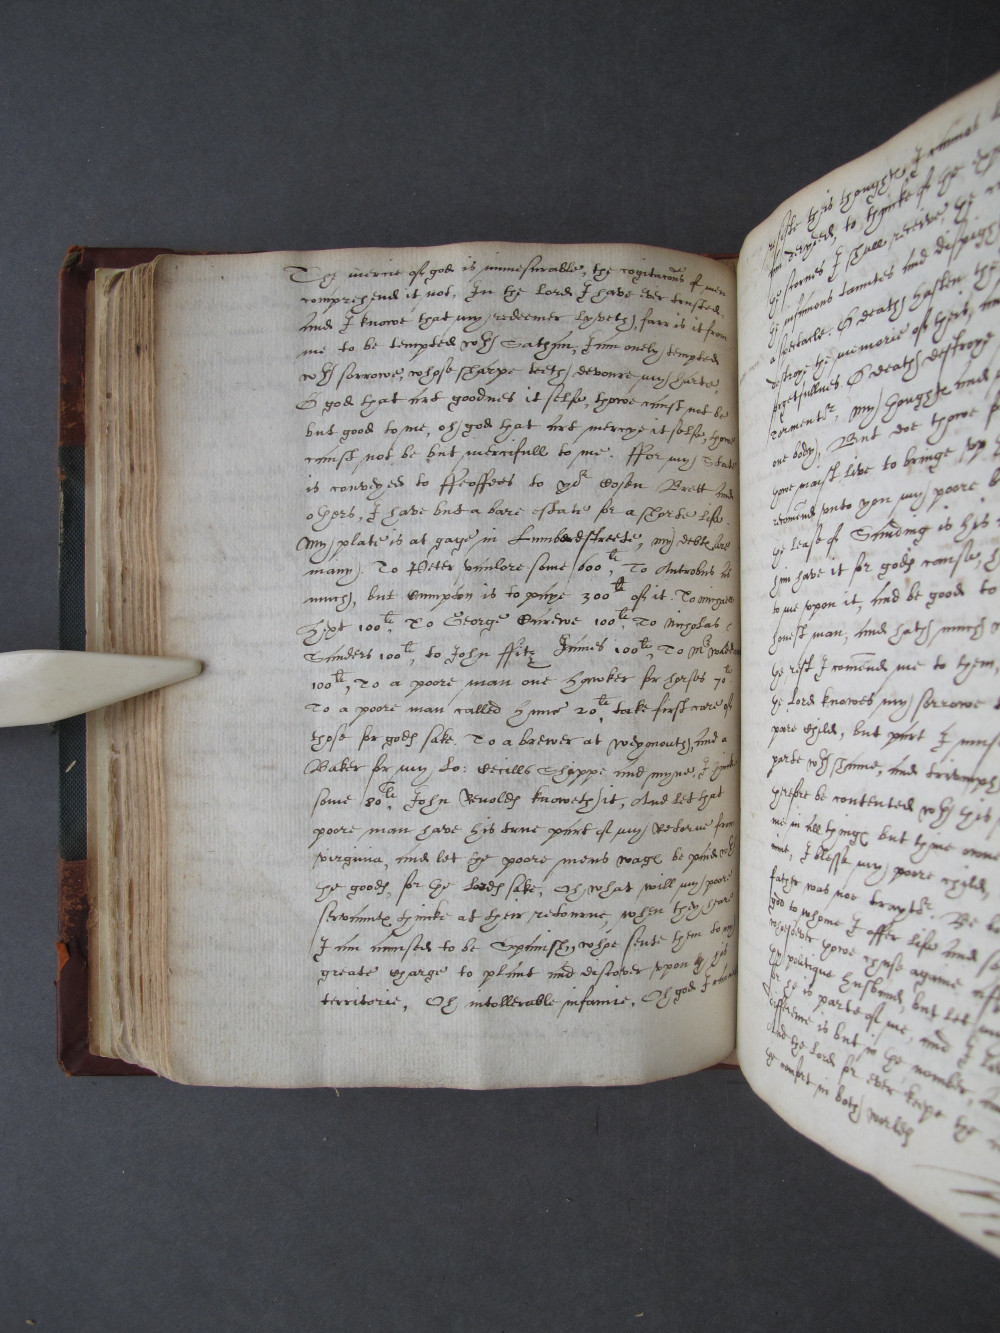 The mercie of god is immesurable, the cogitacõns of men
comprehend it not, In the Lord I have ever trusted
And I knowe that my redeemer lyveth, farr is it from
me to be tempted wth Sathan, I am onely tempted
wth sorrowe, whose sharpe teeth devoure my harte,
O god that art goodnes it selfe, thowe canst not be
but good to me, oh god that art mercye it selfe, thowe
canst not be but mercifull to me. ffor my State
is conveyed to ffeoffees to yor Cosen Brett and
others, I have but a bare estate for a shorte life
My plate is at gage in Lumberdstreete, my debts are
many. To Peter vanlore some 600li, To Antrobus as
much, but Cumpdon is to paye 300li of it. To Michaell
Hext 100li, To George Carewe 100li, To Nicholas
Sanders 100li, to John ffitz James 100li, To Mr
100li, To a poore man one Hawker for horses 70li
To a poore man called Hance 20li, take first care of
those for gods sake. To a brewer at weymouth, and a
Baker for my Lo: Cecills Shippe and myne, I thinke
some 80li, John Renolds knoweth it, And let that
poore man have his true part of my Retorne from
virginia, and let the poore mens wags be paid wth
the goods, for the Lords sake, Oh what will my poore
servaunts thincke at their retourne, when they heare
I am accused to be Spanish, whoe sente them to my
greate Charge to plant and discover upon his
territorie, Oh intollerable infamie, Oh god I cannot
resiste theis thoughts, I cannot
to thincke of the
the scornes I shall receive, the
the infamous taunts and dispights
a spectacle. O death hasten thee
destroye the memorie of theis, and
forgetfullnes. O death destroye my
tormentor, My thoughts and
one body, But doe thowe
thowe maist live to bringe up
recomend unto you my poore
the lease of Sanding is his
him have it for gods cawse, he
to me upon it, And be good to
honest man, and hath much
the rest I comend me to them,
the Lord knowes my sorrowe to
poore Child, but part I must
parte wth shame, and triumph
therefore be contented wth this
me in all things but thine owne
I blesse my poore Child,
father was noe traytor. Be
god to whome I offer life and
whosoever thowe chuse againe after
thy politique husband, but let
he is parte of me, and I
difference is but in the number,
And the Lord for ever keepe thee
the comfort in both worlds